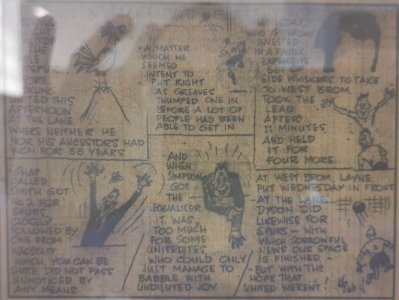 THE
UNITED THIS
AFTERNOON
AT THE LANE,
WHERE NEITHER HE
NOR HIS ANCESTORS HAD
WON FOR 38 YEARS
-A MATTER
WHICH HE
SEEMED
INTENT TO
PUT RIGHT
AS GREAVES
THUMPED ONE IN
BEFORE A LOT OF
PEOPLE HAD BEEN
ABLE TO GET IN
WEDNESDAY,
WHO YESTERDAY
INVESTED
IN A FAIRLY
EXPENSIVE
SET OF
SIDE WHISKERS TO TAKE
TO WEST BROM,
TOOK THE
LEAD
AFTER
12 MINUTES
AND HELD
IT FOR
FOUR MORE.
CALLED
SMITH GOT
No 2 FOR
SPURS
CLOSELY
FOLLOWED BY
ONE FROM
WHICH, YOU CAN BE
SURE, DID NOT PASS
UNNOTICED BY
ANY MEANS
AND
WHEN
SIMPSON
GOT
THE
EQUALISER
IT WAS
TOO MUCH
FOR SOME
UNITEDITES,
WHO COULD ONLY
JUST MANAGE TO
BABBLE WITH
UNDILUTED JOY.
AT WEST BROM, LAYNE
PUT WEDNESDAY IN FRONT
-AT THE LANE,
DYSON DID
LIKEWISE FOR
SPURS - WITH
WHICH SORROWFUL
NEWS OUR SPACE
IS FINISHED -
- BUT WITH THE
HOPE THAT
UNITED WEREN'T!